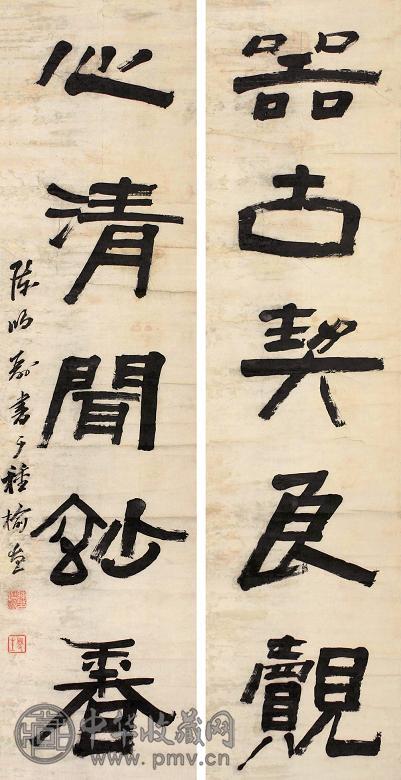 器古契良覿
心清聞玅香
陳鴻壽書于種榆
中华收藏网
www.pmv.cn